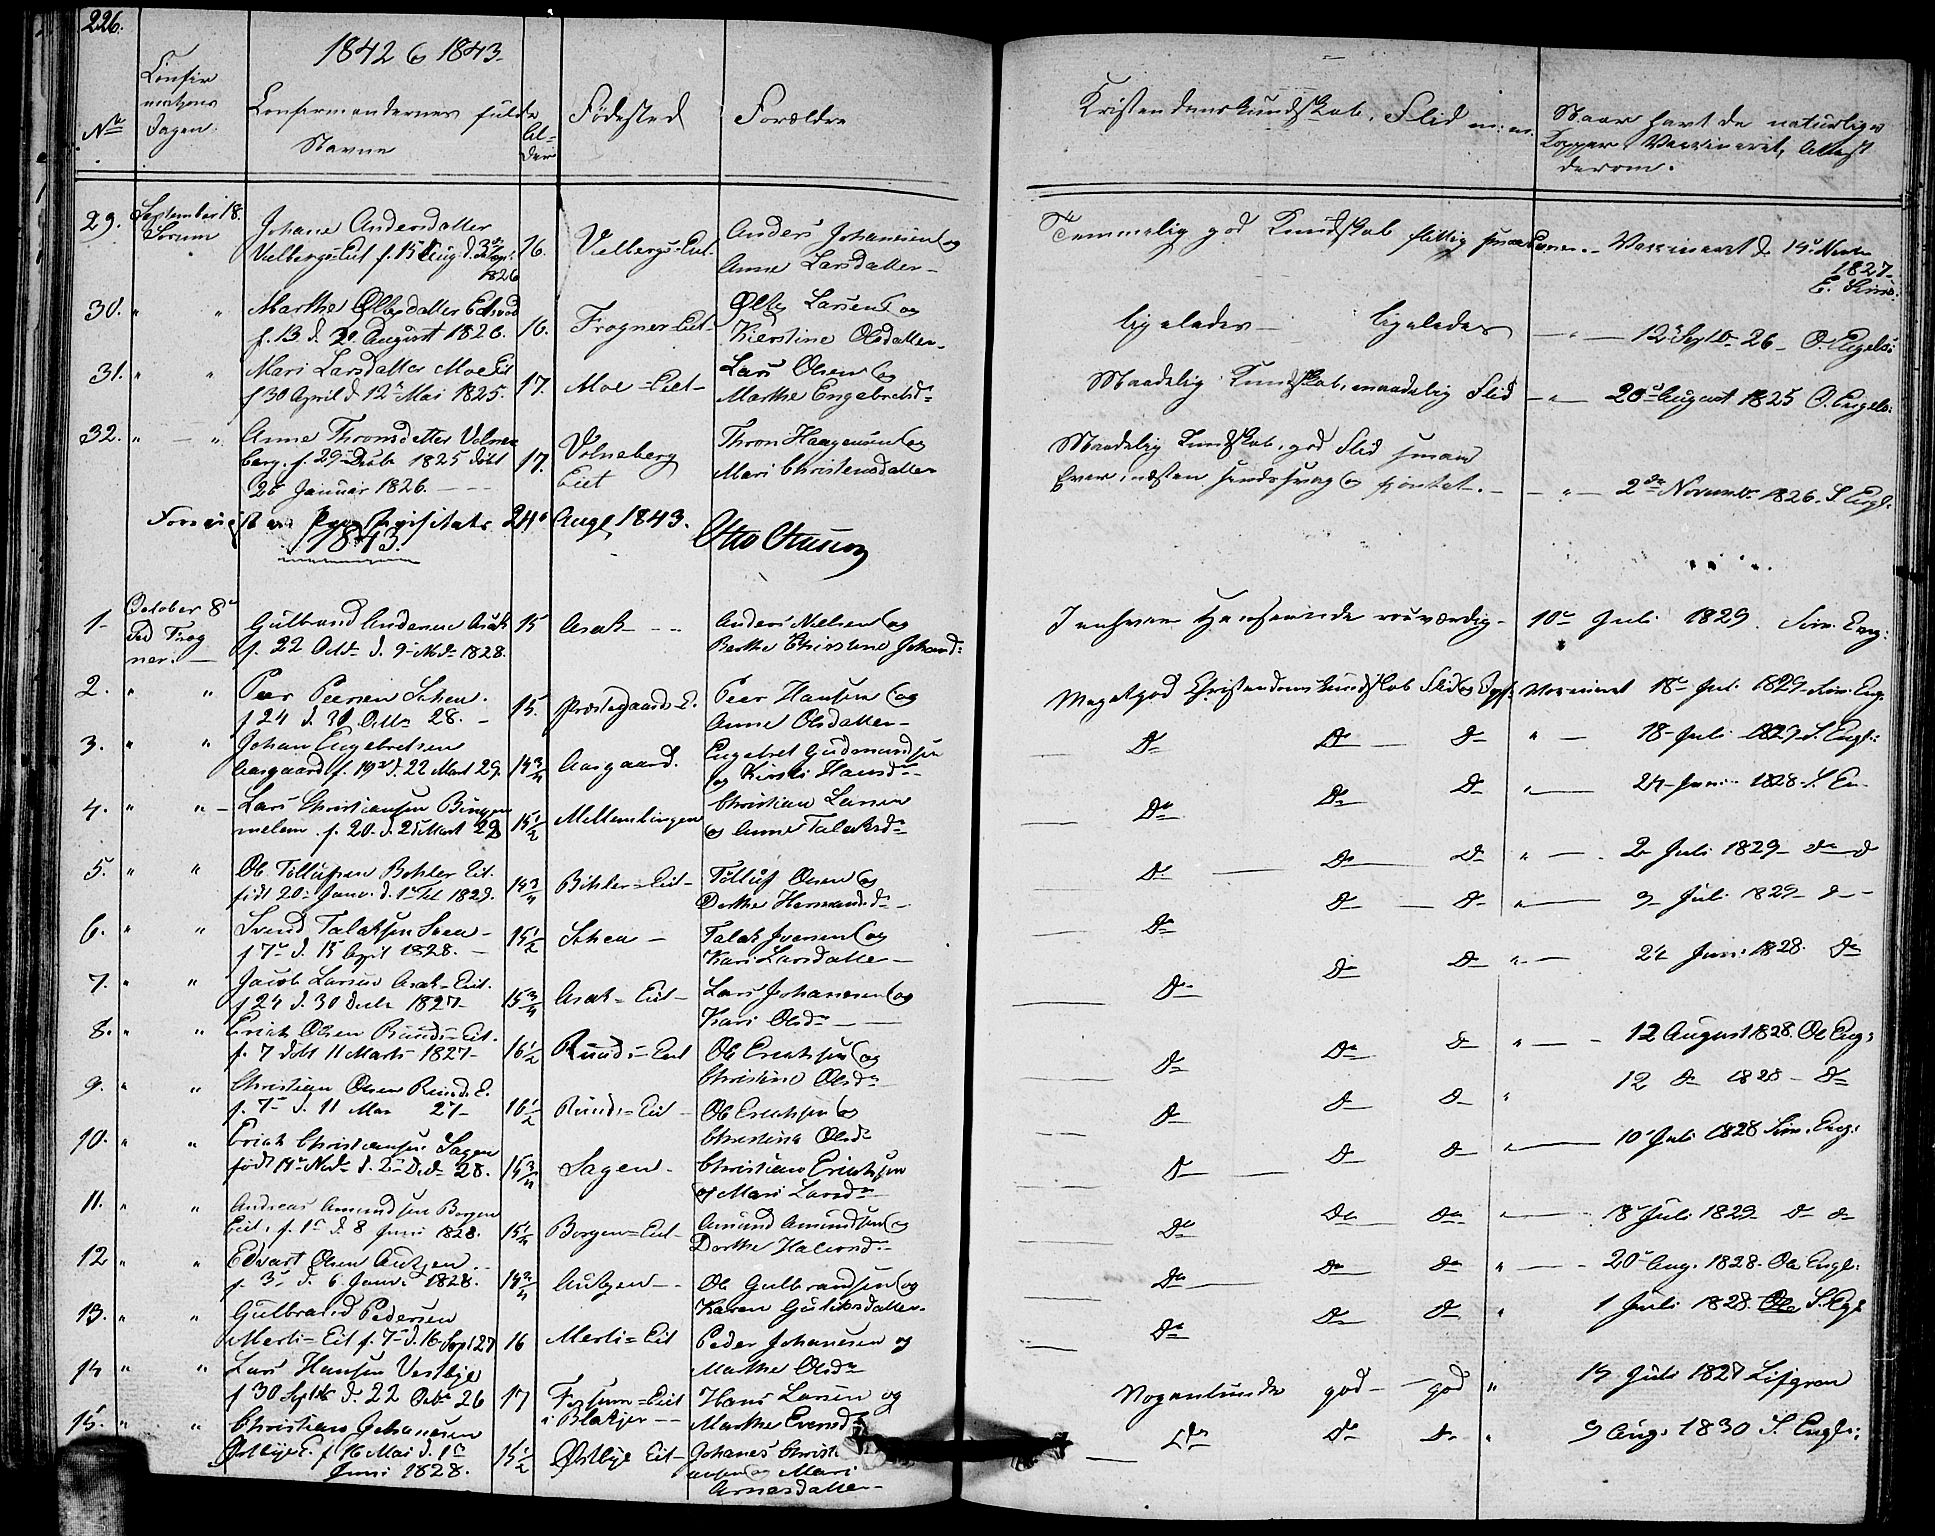 226.
1842 & 1843.
No
Confir
mations
Dagen.
Confirmandernes fulde
Navne
Al-
der
Fødested
Forældre
Kristendomskundskab, Flid m: m.
Naar havt de naturlige
Kopper, Vaccineret, Attest
derom.
29. September 18. Johane Andersdatter
Sørum Vielbergs-Eiet f. 15 Aug. d. 3 Sept. 1826 16. Vielbergs-Eiet Anders Johannesen og
Anne Larsdatter
Temmelig god Kundskab flittig smaa Evner. Vaccineret d. 14 Novbr
1827
30. " " Marthe
f. 13 d. 20 August 1826. 16. Frogner-Eiet Larsen og
Kierstine Olsdatter
ligeledes ligeledes 12 Septbr 26 O. Engels:
31. " " Mari Larsdatter Moe Eit
f 30 April d 12 Mai 1825. 17. Moe-Eiet Lars Olsen og
Marthe Engebretsd
Maadelig Kundskab, maadelig Flid " 20 August 1825 O. Engels:
32. " " Anne Thronsdatter Volne
berg. f. 29 Decbr 1825 døbt
26 Januar 1826. 17. Volneberg
Eiet Thron Haagensen og
Mari Christensdatter
Maadelig Kundskab, god Flid smaa
Evner, næsten " 2den Novembr 1826. S. Engl.
Foreviist ved Provstevisitats 24 Aug 1843. Otto
1843.
1. October 8
ved Frog
ner. Gulbrand Andersen Asak
f. 22 Octbr d. 9 Novbr 1828. 15 Asak Anders Nielsen og
Berthe Christine Johansd:
10 Juli 1829. Sim. Eng:
2. " " Peer Peersen Schea.
f 24 d. 30 Octbr 28. 15. Præstegaards-E. Peer Hansen og
Anne Olsdatter
Meget god Christendomskundskab Flid og Vaccineret 18 Juli 1829 Sim. Eng.
3. " " Johan Engebretsen
Aasgaard f. 19 d. 22 Mart 29. 14 3/4 Aasgaard. Engebret Gudmundsen
og Kirsti Hansd
Do Do Do " 18 Juli 1829 S. Engl:
4. " " Lars Christiansen Bingen
melem. f. 20. d. 25 Mart 28 15 1/2 Mellembingen Christian Larsen
og Anne Talaksd
Do Do Do " 24 Juni 1828. S. En
5. " " Ole Tollefsen Bøhler Eit.
født 20 Janv. d. 1 Feb 1829. 14 3/4 Bøhler-Eiet Tolluf Olsen og
Dorthe Hermansd
Do Do Do " 2 Juli 1829 do d
6. " " Svend Talaksen Schea
f 7 d. 15 April 1828. 15 1/2 Schea Talak Iversen og
Kari Larsdatter
Do Do Do " 9 Juli 1829 d
7. " " Jacob Larsen Asak-Eiet.
f 24 d. 30 Decbr 1827 15 3/4 Asak-Eiet Lars Johannesen og
Kari Olsd
Do Do Do " 24 Juni 1828. Do
8. " " Erich Olsen Runds-Eit.
f. 7 døbt 11 Marts 1827 16 1/2 Runds-Eiet Ole Erichsen og
Christine Olsd
Do Do Do " 12 August 1828. Ole Eng:
9. " " Christian Olsen Runds E.
f. 7 d. 11 Mar 27 16 1/2 Runds-Eiet Ole Erichsen og
Christine Olsd
Do Do Do " 12 do 1828 Do
10. " " Erich Christiansen Sagen
født 14 Novbr d. 2 Decbr 28. 14 3/4 Sagen Christian Erichsen
og Mari Larsd
Do Do Do " 10 Juli 1828 Sim. Eng:
11. " " Andreas Amundsen Borgen
Eit. f. 1 d. 8 Juni 1828. 15 1/4 Borgen-Eiet Amund Amundsen og
Dorthe Halvorsd
Do Do Do " 18 Juli 1829 do do
12 " " Edvart Olsen
f. 3 d. 6 Janv. 1828. Ole Gulbrandsen og
Karen Guliksdatter
Do Do Do " 20 Aug. 1828. Ole Engl:
13. " " Gulbrand Pedersen
Merli-Eit f. 7 d. 16 Sept 27 16 Merli-Eiet Peder Johannesen og
Marthe Olsd
Do Do Do " 1 Juli 1828. S. Egl
14 " " Lars Hansen Vestbye
f 30 Septbr d. 22 Octbr 26 17 -Eiet
i Blakjer Hans Larsen og
Marthe Evensd
Nogenlunde god god " 14 Juli 1827
15. " " Christian Johannesen
Østbyes E. f 16 Mai d. 1
Juni 1828. 15 1/2 Østbye Eiet Johanes Christi
ansen og Mari
Arnesdatter
Do Do Do " 9 Aug. 1830 S. Engl: